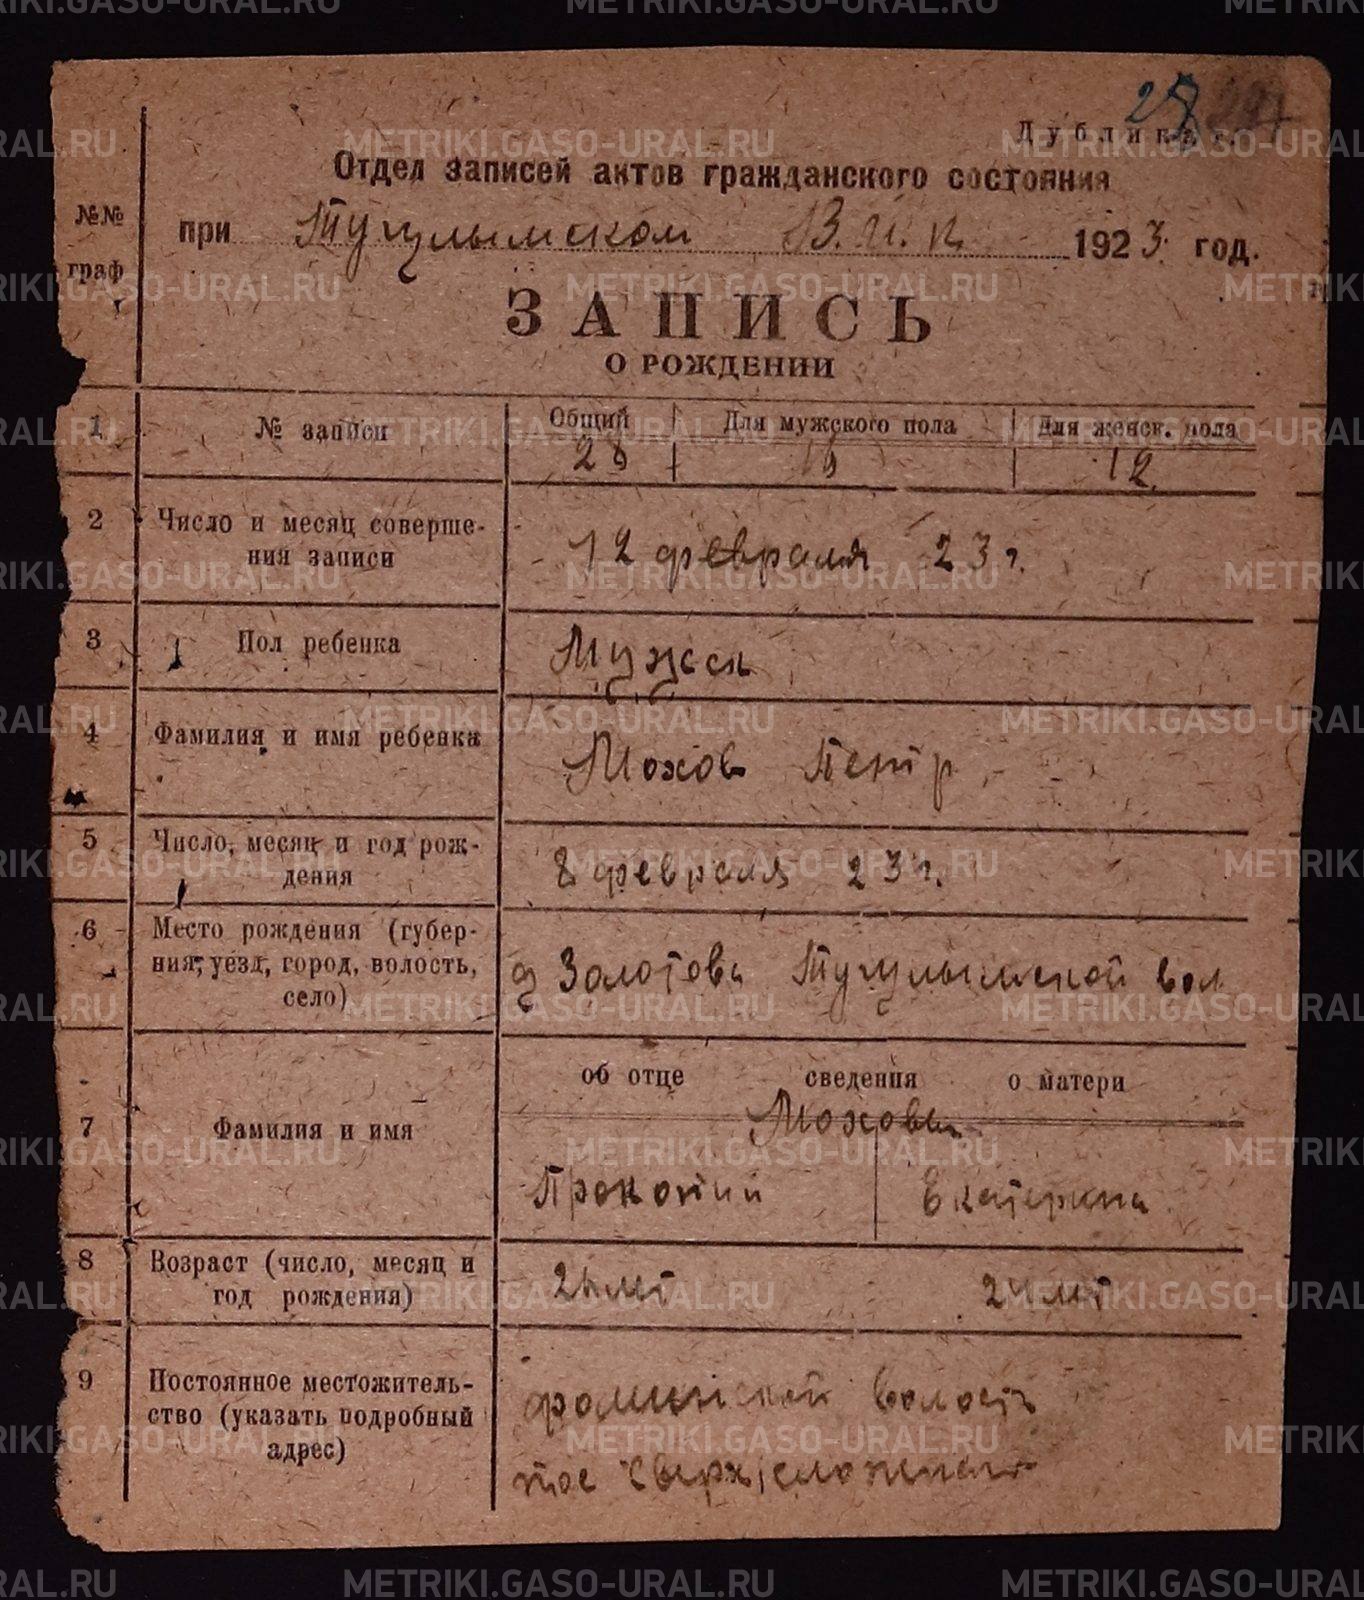 Дубликат.
Отдел записей актов гражданского состояния
при Тугулымском В.И.К 1923 год.
№№ граф
ЗАПИСЬ
О РОЖДЕНИИ
1 № записи Общий Для мужского пола Для женск. пола
12
2 Число и месяц соверше-
ния записи
12 февраля 23 г.
3 Пол ребенка
Мужск
4 Фамилия и имя ребенка
Мохов Петр
5 Число, месяц и год рож-
дения
8 февраля 23 г.
6 Место рождения (губер-
ния, уезд, город, волость,
село)
д Золотова Тугулымской вол
об отце сведения о матери
7 Фамилия и имя
Моховы
Прокопий Екатерина
8 Возраст (число, месяц и
год рождения)
лет 24 лет
9 Постоянное местожитель-
ство (указать подробный
адрес)
фоминской волости
METRIKI.GASO-URAL.RU